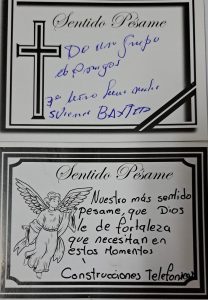 Sentido Pésame
De un Grupo
de Amigos
Sentido Pésame
Nuestro más sentido
pesame, que Dios
le de fortaleza
que necesitan en
estos momentos
Construcciones Telefonicas